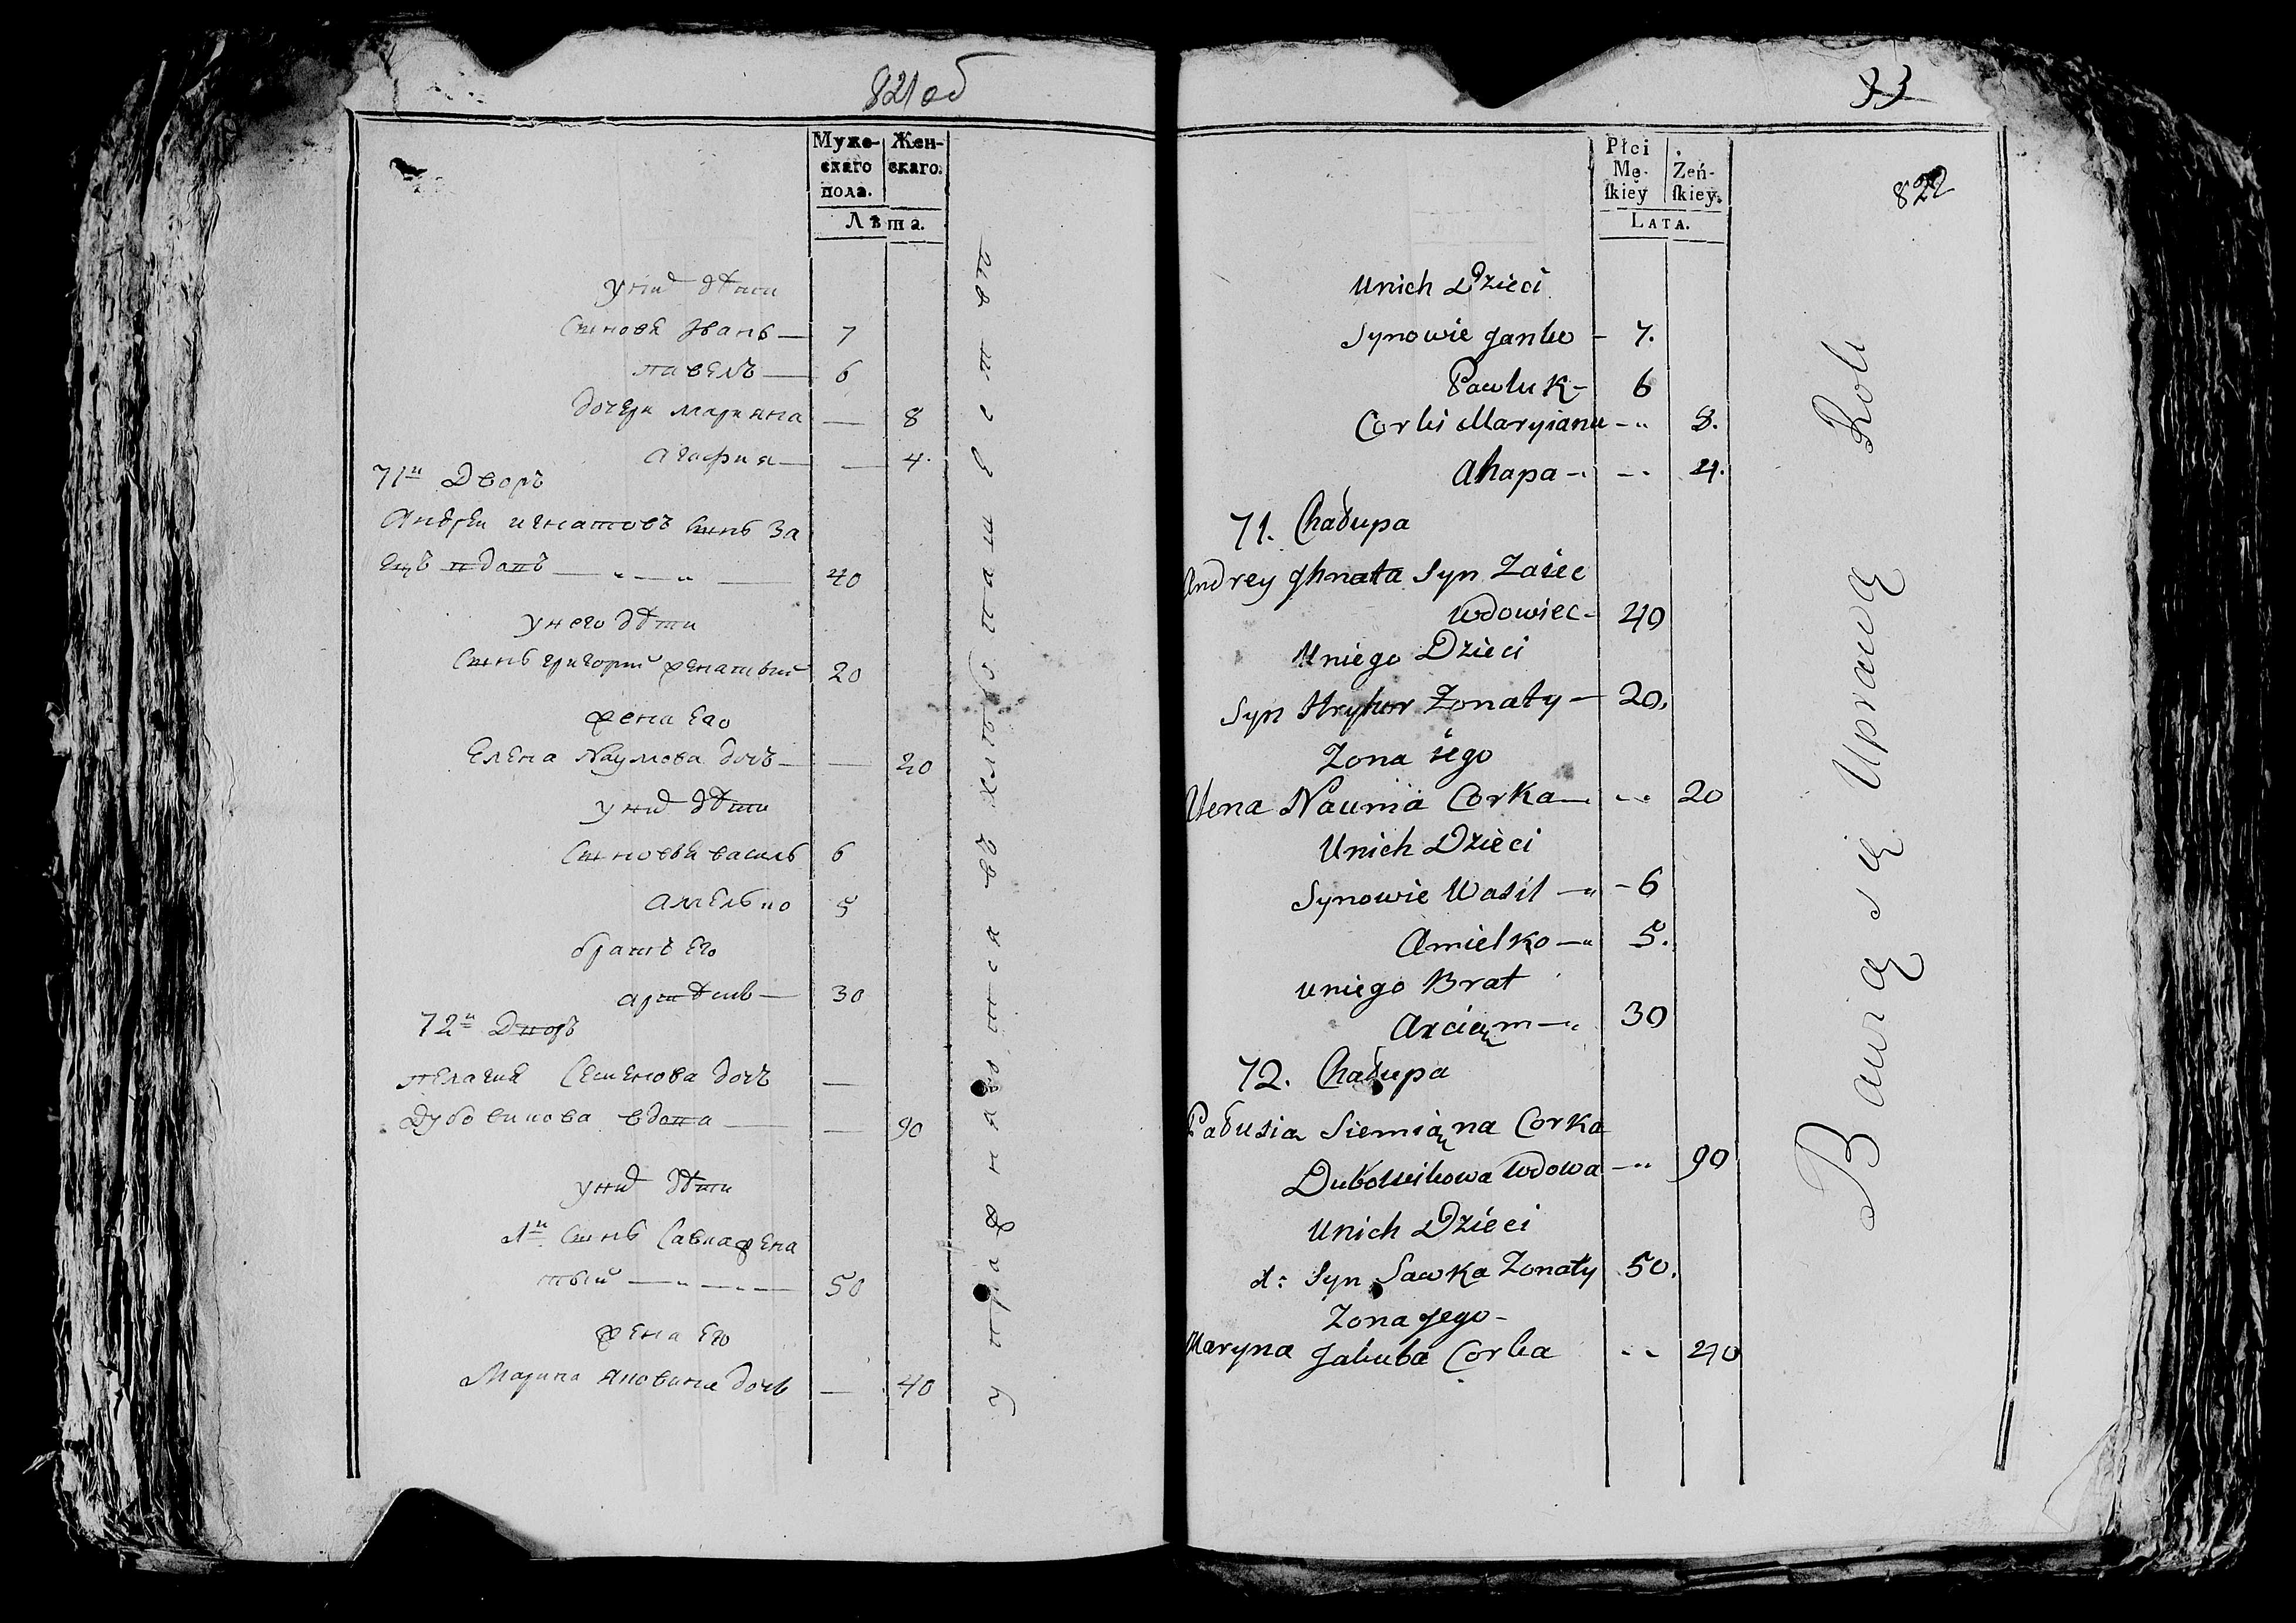 821 об
Муже- Жен-
скаго скаго.
пола.
Лѣта.
у них дѣти
Синовя Иванъ — 7
павелъ — 6
дочери марияна — 8
агафия — — 4.
71й Дворъ
Андрей игнатовъ синъ За
ецъ вдовъ — „ — „ — 40
у него дѣти
Синъ григорий женатый 20
жена его
Елена Наумова дочъ — — 20
у них дѣти
Синовья василь 6
амелько 5
братъ его
артѣмъ — 30
72й Дворъ
пелагия Семенова дочъ —
Дубовикова вдова — — 90
у них дѣти
1й Синъ Савка жена
тый — „ — „ — 50
жена его
Марина яковина дочь — 40
упражняются въ хлѣбопашествѣ
33
822
Płci
Mę- Żeń-
skiey skiey.
LATA.
Unich Dzieci
Synowie Janko — 7.
Pawluk — 6
Corki Maryiana — „ 8.
Ahapa — „ — „ 4.
71. Chałupa
Andrey Ihnata Syn Zaiec
Wdowiec — 40
Uniego Dzieci
Syn Hryhor Zonaty — 20.
Zona iego
Ulena Nauma Corka — „ 20
Unich Dzieci
Synowie Wasil — „ — 6
Amielko — „ 5.
uniego Brat
Arciąm — „ 30
72. Chałupa
Pałusia Siemiąna Corka
Dubowikowa Wdowa — „ 90
Unich Dzieci
1: Syn Sawka Zonaty 50.
Zona Jego —
Maryna Jakuba Corka — „ 40
Bawią się Uprawą Roli